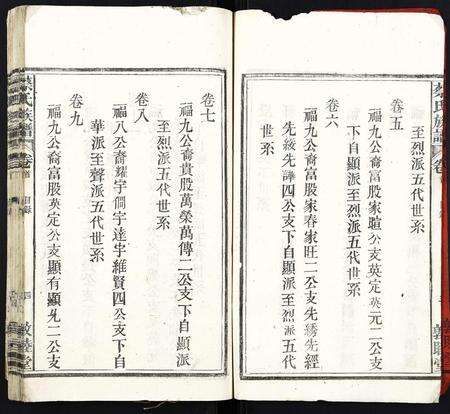 至烈派五代世系
卷五
一福九公裔富股家暄公支英定英元二公支
下自顯派至烈派五代世系
卷六
一福九公裔富股家春家旺二公支先綉先經
先紋先諱四公支下自顯派至烈派五代
世系
卷七
一福九公裔貴股萬榮萬傳二公支下自顯派
至烈派五代世系
卷八
一福八公裔耀宇侗宇達宇維賢四公支下自
華派至聲派五代世系
卷九
一福九公裔富股英定公支顯有顯先二公支
氏族譜
卷首
目錄
敦睦堂